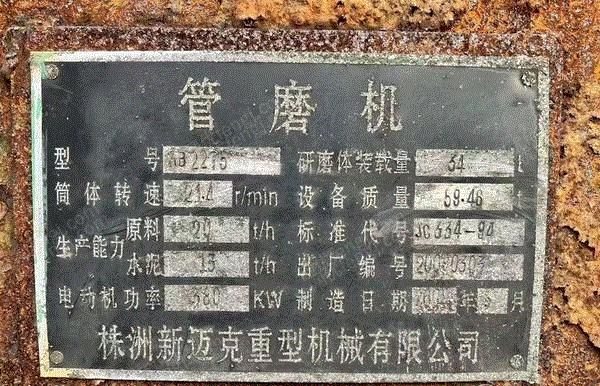 管磨机
型号 2275 研磨体装载量 34 t
筒体转速 21.4 r/min 设备质量 59.46 t
生产能力 原料 20 t/h 标准代号 JC334-94
水泥 t/h 出厂编号
电动机功率 380 KW 制造日期 年 月
株洲新迈克重型机械有限公司